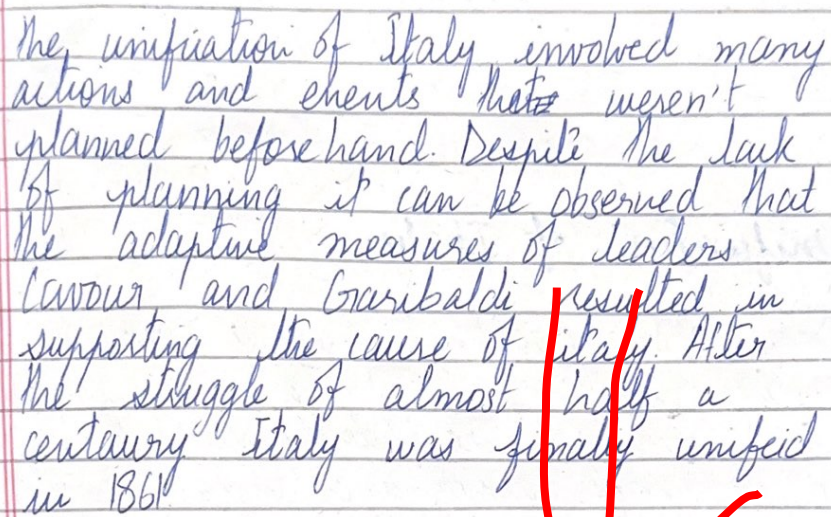 the unifiiation of Italy involved many
actions and events that weren't
planned beforehand. Despite the lack
of planning it can be observed that
the adaptive measures of leaders
Cavour and Garibaldi resulted in
supporting the cause of italy. After
the struggle of almost half a
centaury Italy was finally unifeid
in 1861.